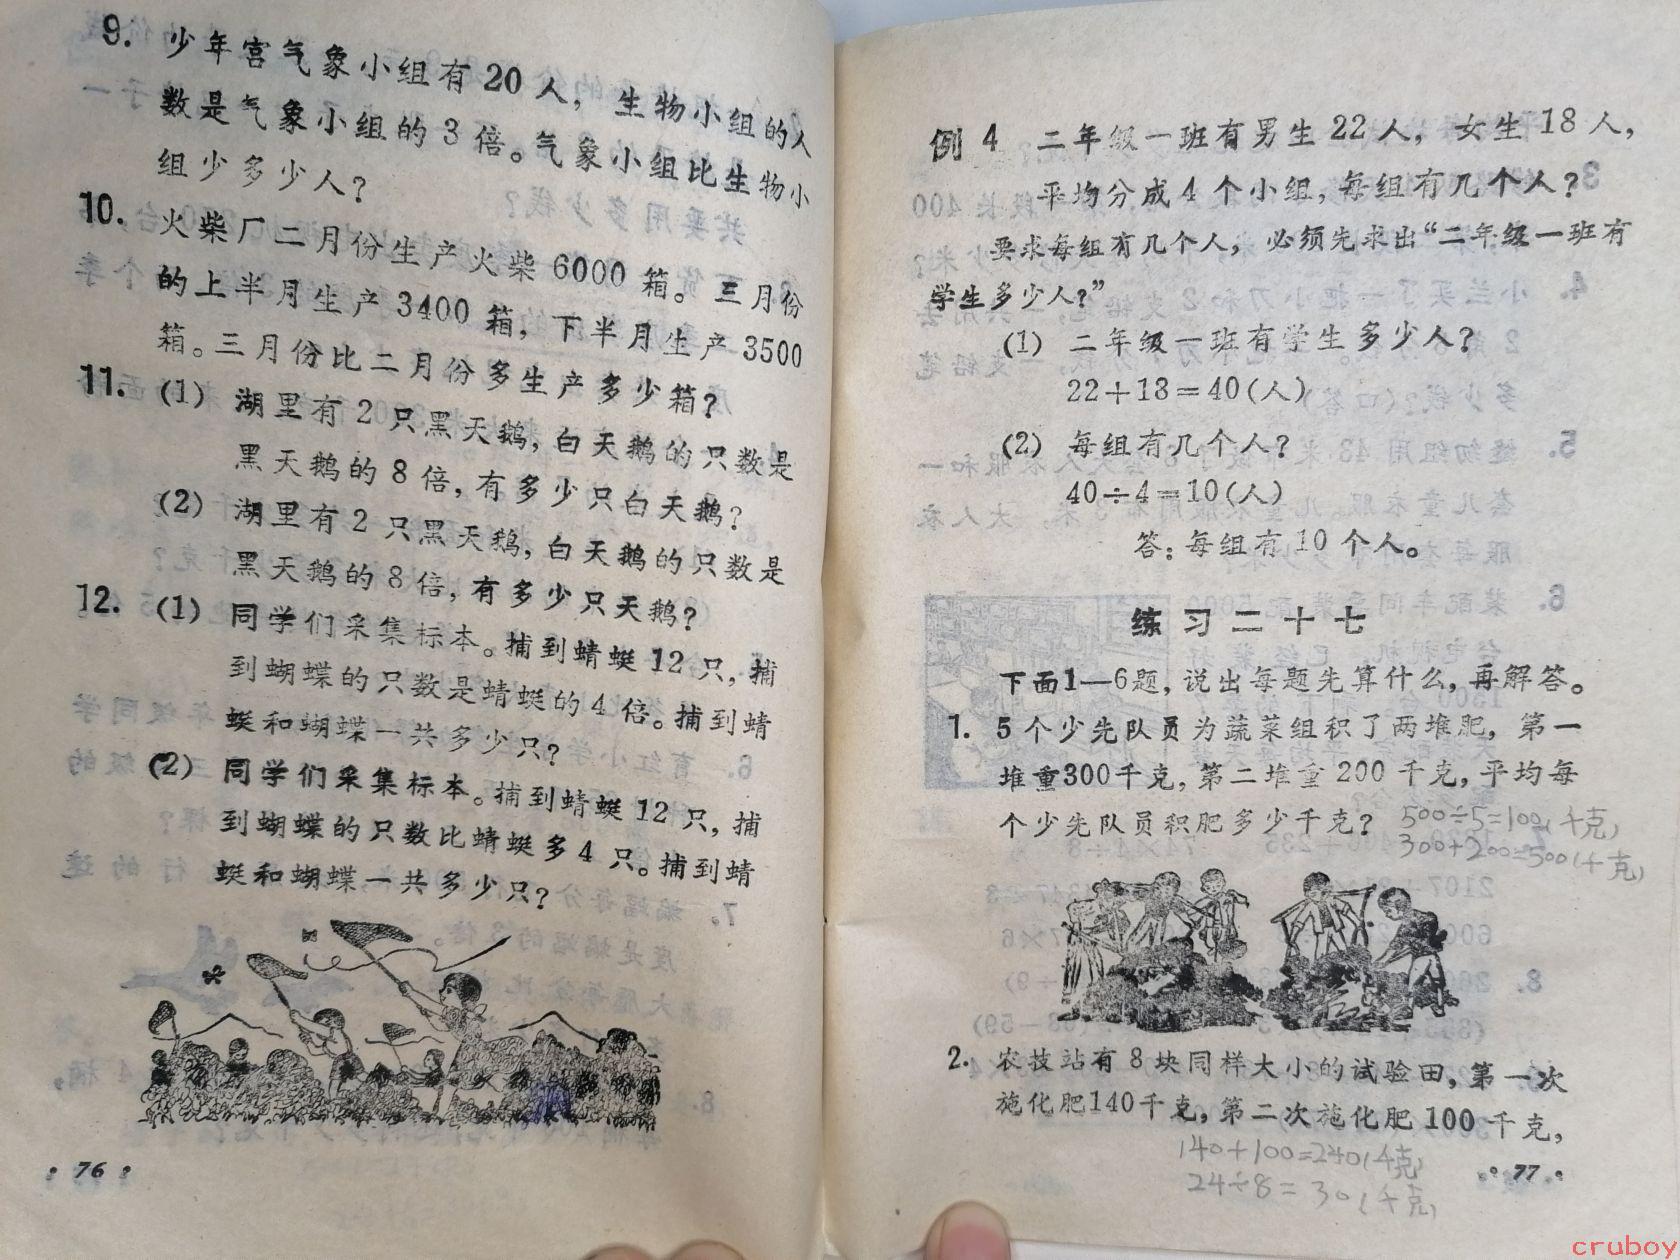 9. 少年宫气象小组有20人，生物小组的人
数是气象小组的3倍。气象小组比生物小
组少多少人？
10. 火柴厂二月份生产火柴6000箱。三月份
的上半月生产3400箱，下半月生产3500
箱。三月份比二月份多生产多少箱？
11. (1) 湖里有2只黑天鹅，白天鹅的只数是
黑天鹅的8倍，有多少只白天鹅？
(2) 湖里有2只黑天鹅，白天鹅的只数是
黑天鹅的8倍，有多少只天鹅？
12. (1) 同学们采集标本。捕到蜻蜓12只，捕
到蝴蝶的只数是蜻蜓的4倍。捕到蜻
蜓和蝴蝶一共多少只？
(2) 同学们采集标本。捕到蜻蜓12只，捕
到蝴蝶的只数比蜻蜓多4只。捕到蜻
蜓和蝴蝶一共多少只？
• 76 •
例4 二年级一班有男生22人，女生18人，
平均分成4个小组，每组有几个人？
要求每组有几个人，必须先求出“二年级一班有
学生多少人？”
(1) 二年级一班有学生多少人？
22+18=40(人)
(2) 每组有几个人？
40÷4=10(人)
答：每组有10个人。
练习二十七
下面1—6题，说出每题先算什么，再解答。
1. 5个少先队员为蔬菜组积了两堆肥，第一
堆重300千克，第二堆重200千克，平均每
个少先队员积肥多少千克？ 500÷5=100(千克)
300+200=500(千克)
2. 农技站有8块同样大小的试验田，第一次
施化肥140千克，第二次施化肥100千克，
140+100=240(千克)
24÷8=30(千克)
• 77 •
cruboy